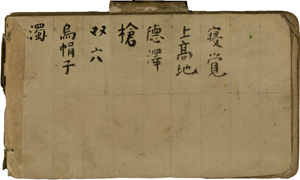 寝覚
上高地
德澤
槍
双六
烏帽子
濁